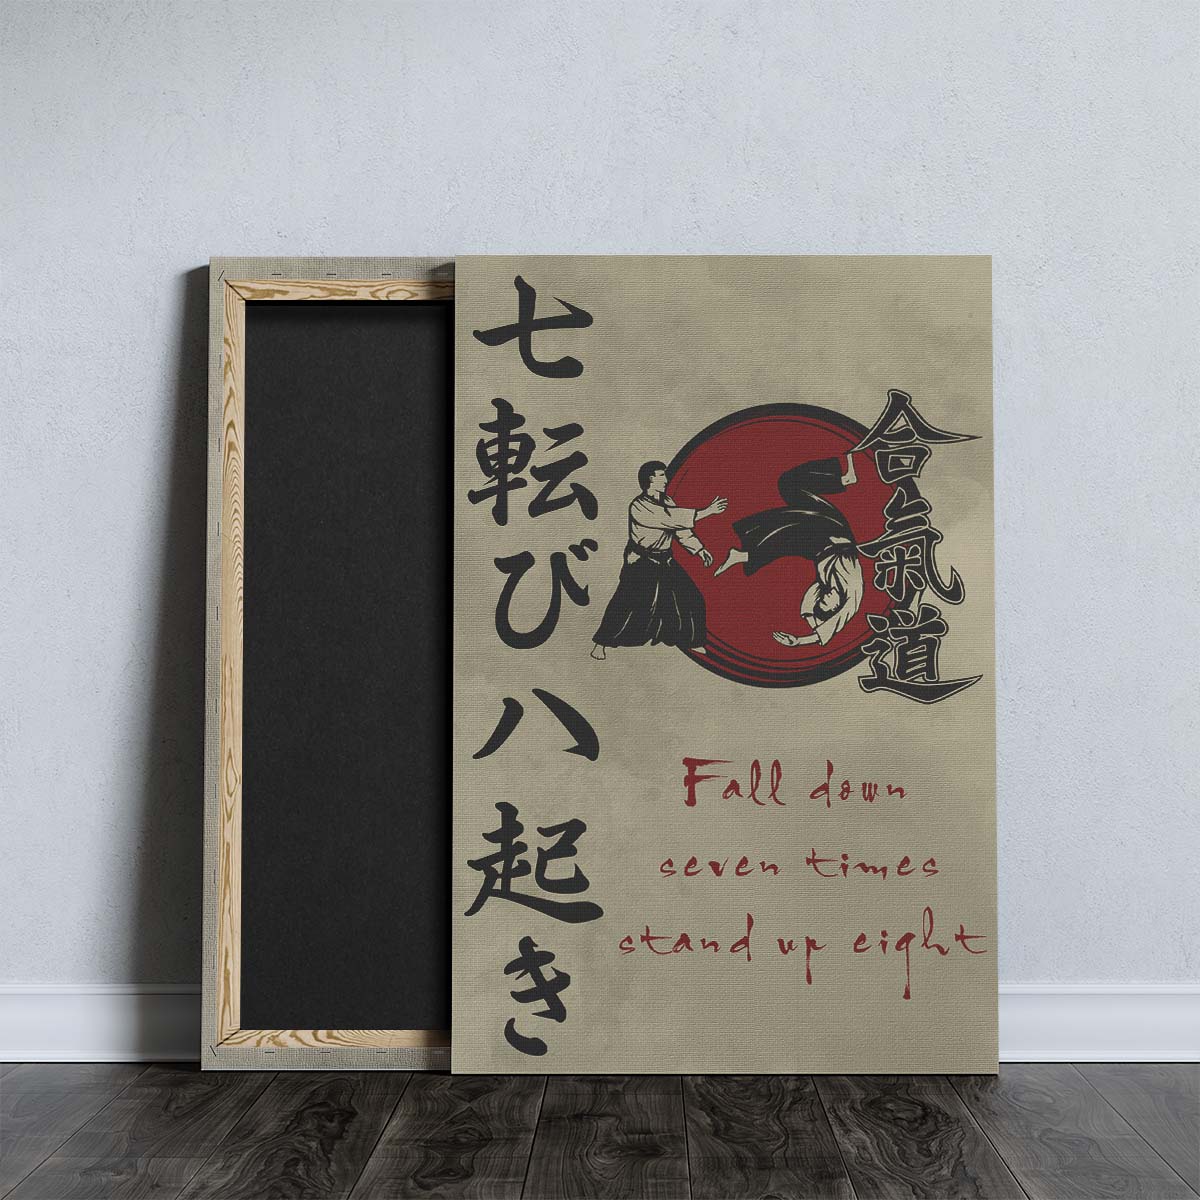 七転び八起き
合氣道
Fall down
seven times
stand up eight